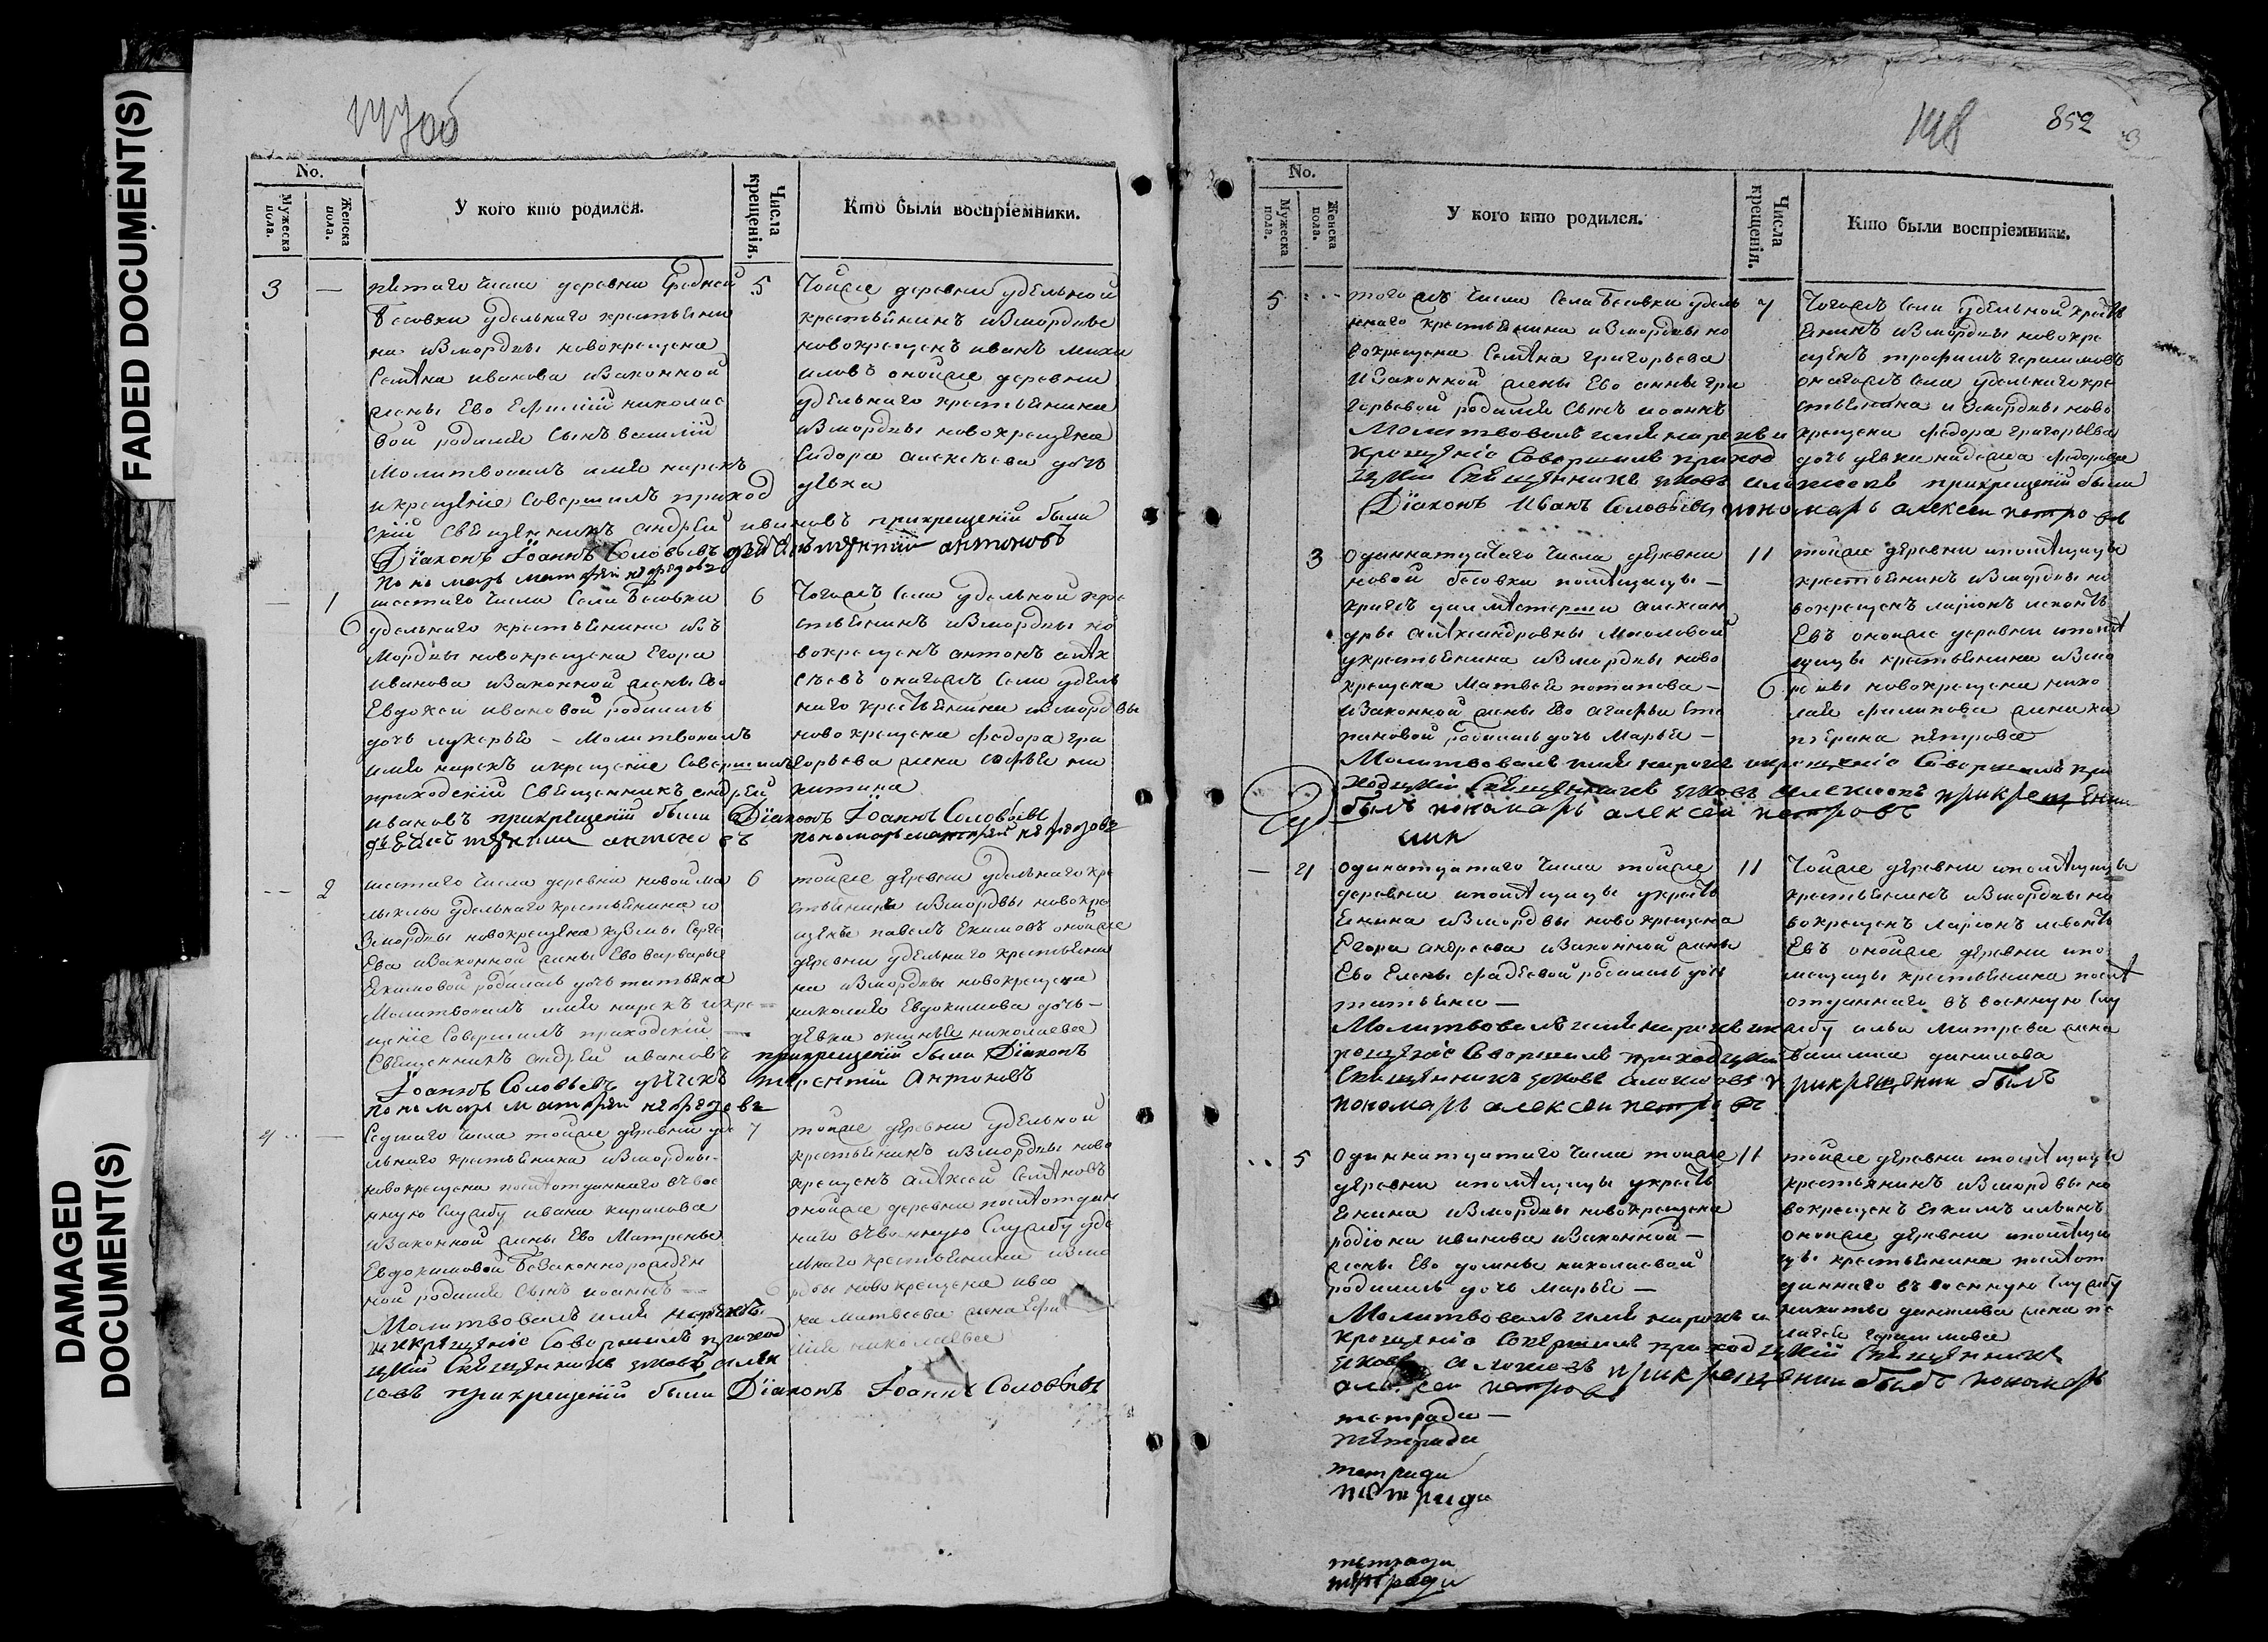 FADED DOCUMENT(S)
DAMAGED
DOCUMENT(S)
No.
Мужеска
пола.
Женска
пола.
У кого кто родился.
Числа
крещенія.
Кто были воспріемники.
3 —
пятаго числа деревни Средней
Бесовки удельнаго крестьяни
на измордвы новокрещена
Семена иванова изаконной
жены Ево Ефиміи николае
вой родился сынъ василій
Молитвовалъ имя нарекъ
и крещеніе совершилъ приход
скій священникъ андрей ивановъ прикрещеніи были
Діаконъ Іоаннъ Соловьевъ дьячекъ терентій антоновъ
пономарь матфей
5
Тойже деревни удельной
крестьянинъ измордвы
новокрещенъ иванъ миха
иловъ онойже деревни
удельнаго крестьянина
измордвы новокрещена
Сидора алексеева дочь
девка
— 1
шестаго числа села Бесовки
удельнаго крестьянина изъ
Мордвы новокрещена Егора
иванова изаконной жены Ево
Евдокеи ивановой родилась
дочь лукерья – Молитвовалъ
имя нарекъ и крещеніе совершилъ
приходскій священникъ андрей
ивановъ прикрещеніи были Діаконъ Іоаннъ Соловьевъ
дьячекъ терентій антоновъ пономарь матфей
6
Тогожъ села удельной кре
стьянинъ измордвы но
вокрещенъ антонъ алек
сеевъ онагожъ села удель
наго крестьянина измордвы
новокрещена федора гри
горьева жена софья ни
китина
2
шестаго числа деревни новой ма
лыклы удельнаго крестьянина и
змордвы новокрещена кузмы Серге
Ева изаконной жены Ево варвары
Екимовой родилась дочь татьяна
Молитвовалъ имя нарекъ и кре
щеніе совершилъ приходскій
Священникъ андрей ивановъ прикрещеніи были Діаконъ
Іоаннъ Соловьевъ дьячекъ терентій Антоновъ
пономарь матфей
6
тойже деревни удельнаго кре
стьянинъ измордвы новокре
щенъ павелъ Екимовъ онойже
деревни удельнаго крестьяни
на измордвы новокрещена
николая Евдокимова дочь –
девка аксинья николаева
4 —
Седмаго числа тойже деревни уде
льнаго крестьянина измордвы
новокрещена послѣ отданнаго въ вое
нную Службу ивана кирилова
изаконной жены Ево Матрены
Евдокимовой безаконнорожден
ной родился сынъ иоаннъ
Молитвовалъ имя нарекъ
и крещеніе совершилъ приход
цкій Священникъ яковъ алек
севъ прикрещеніи были Діаконъ Іоаннъ Соловьевъ
7
тойже деревни удельной
крестьянинъ измордвы ново
крещенъ алексей семеновъ
онойже деревни послѣ отдан
наго въ военную Службу уде
льнаго крестьянина измо
рдвы новокрещена ива
на матвеева жена Ефи
мія николаева
148
852
No.
Мужеска
пола.
Женска
пола.
У кого кто родился.
Числа
крещенія.
Кто были воспріемники.
5
тогожъ числа села Бесовки удель
ннаго крестьянина измордвы но
вокрещена Семена григорьева
изаконной жены Ево анны гри
горьевой родился сынъ иоаннъ
Молитвовалъ имя нарекъ и
крещеніе совершилъ приход
цкій Священникъ яковъ алексеевъ прикрещеніи были
Діаконъ иванъ Соловьевъ пономарь алексей петровъ
7
Тогожъ села удельной кресть
янинъ измордвы новокре
щенъ трофимъ герасимовъ
онагожъ села удельнаго кре
стьянина измордвы ново
крещена федора григорьева
дочь девка федорова
3
Одиннатцатаго числа деревни
новой бесовки помещицы –
алексан
дры александровны
укрестьянина измордвы ново
крещена Матвея потапова –
изаконной жены Ево агафьи сте
пановой родилась дочь Марья –
Молитвовалъ имя нарекъ и крещеніе совершилъ при
ходцкій Священникъ яковъ алексеевъ прикрещении
былъ пономарь алексей петровъ
11
тойже деревни помещицы
крестьянинъ измордвы но
вокрещенъ ларіонъ леонть
Евъ онойже деревни поме
щицы крестьянина измо
рдвы новокрещена нико
лая филипова жена
петрова
— 4
одинатцатаго числа тойже
деревни ипомещицы укресть
янина измордвы новокрещена
Егора андреева изаконной жены
Ево Елены фадеевой родилась дочь
татьяна —
Молитвовалъ имя нарекъ ик
рещеніе совершилъ приходцкій
Священникъ яковъ алексеевъ прикрещении былъ
пономарь алексей петровъ
11
Тойже деревни ипомещицы
крестьянинъ измордвы но
вокрещенъ ларіонъ левонть
Евъ онойже деревни ипо
мещицы крестьянина послѣ
отданнаго въ военную Слу
жбу ильи митрева жена
данилова
5
Одиннатцатаго числа тойже
деревни ипомещицы укресть
янина измордвы новокрещена
родіона иванова изаконной –
жены Ево домны николаевой
родилась дочь Марья —
Молитвовалъ имя нарекъ и
крещеніе совершилъ приходцкій Священникъ
яковъ алексеевъ прикрещении былъ пономарь
алексей петровъ
11
тойже деревни ипомещицы
крестьянинъ измордвы но
вокрещенъ Екимъ ильинъ
онойже деревни ипомещи
цы крестьянина послѣ от
даннаго въ военную Службу
никиты данилова жена пе
лагея герасимова
тетради —
тетради
тетради
тетради
тетради
тетради